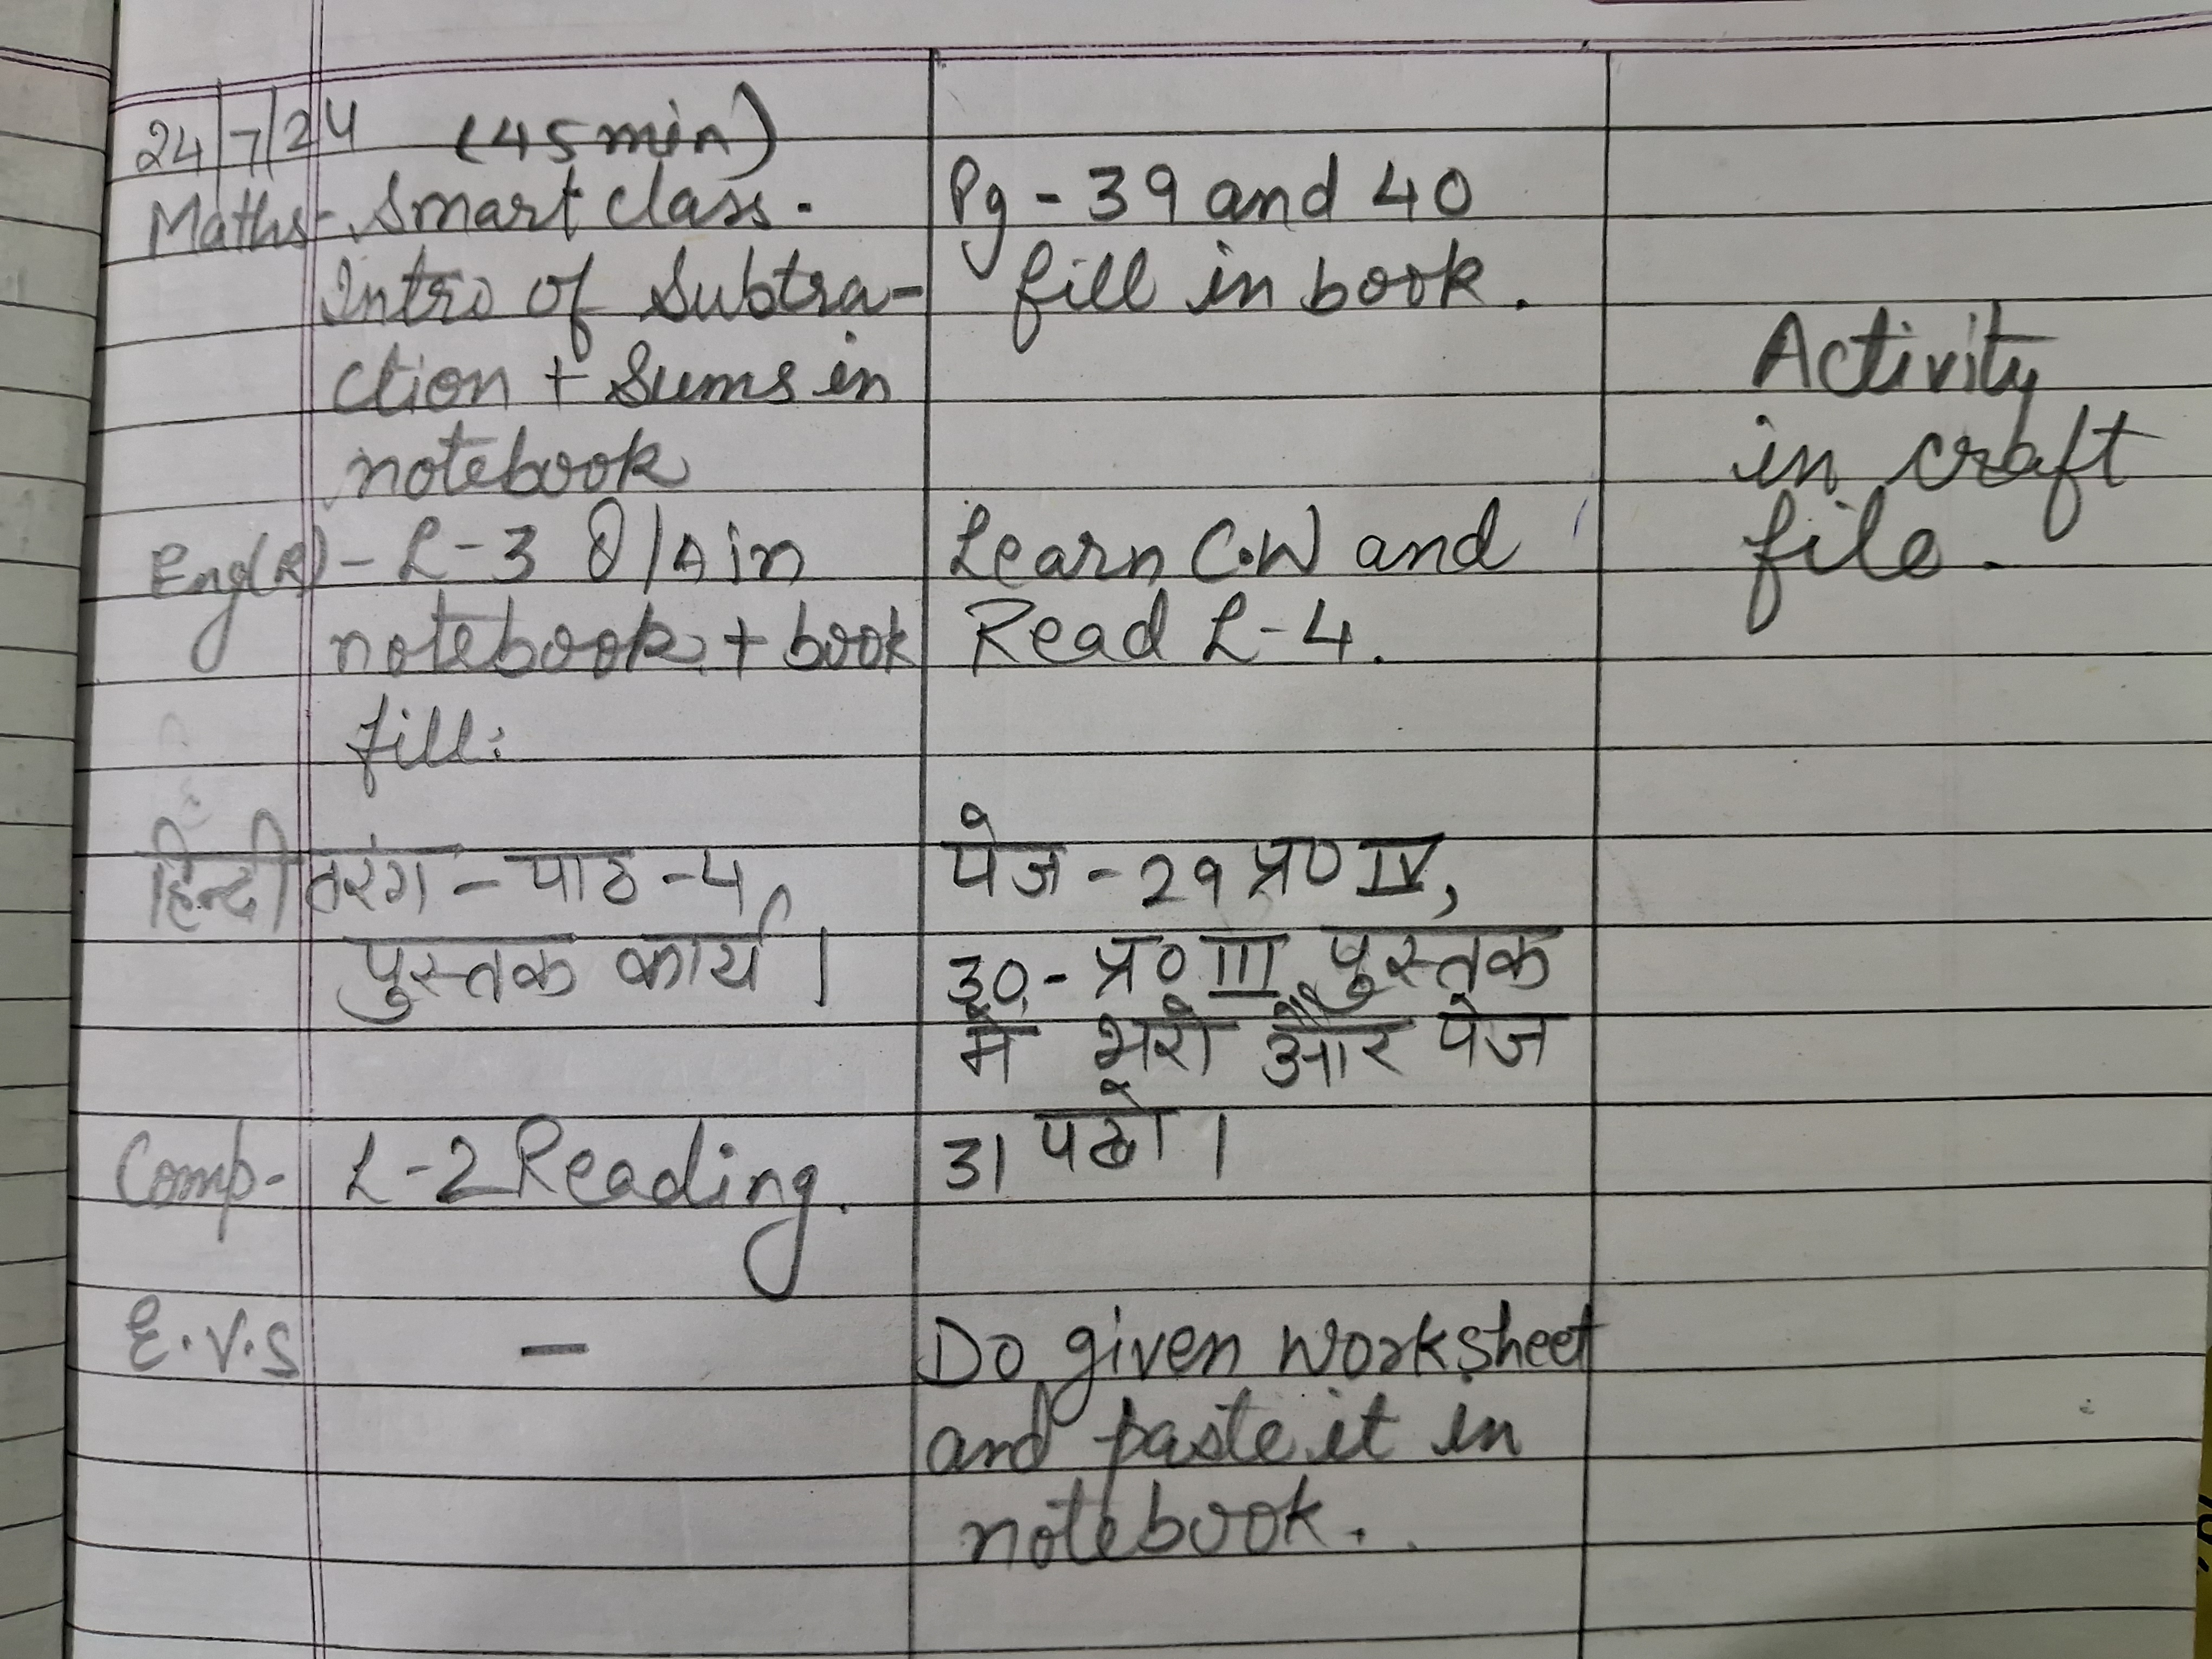 24/7/24 (45 min)
Maths- Smart class.
Intro of Subtra-
ction + Sums in
notebook
Eng(R) - L-3 Q/A in
notebook + book
fill.
हिन्दी तरंग - पाठ - 4
पुस्तक कार्य ।
Comp- L-2 Reading.
E.V.S -
Pg - 39 and 40
fill in book.
Learn C.W and
Read L-4.
पेज - 29 प्र० IV,
30 - प्र० III पुस्तक
में भरो और पेज
31 पढ़ो ।
Do given worksheet
and paste it in
notebook.
Activity
in craft
file.